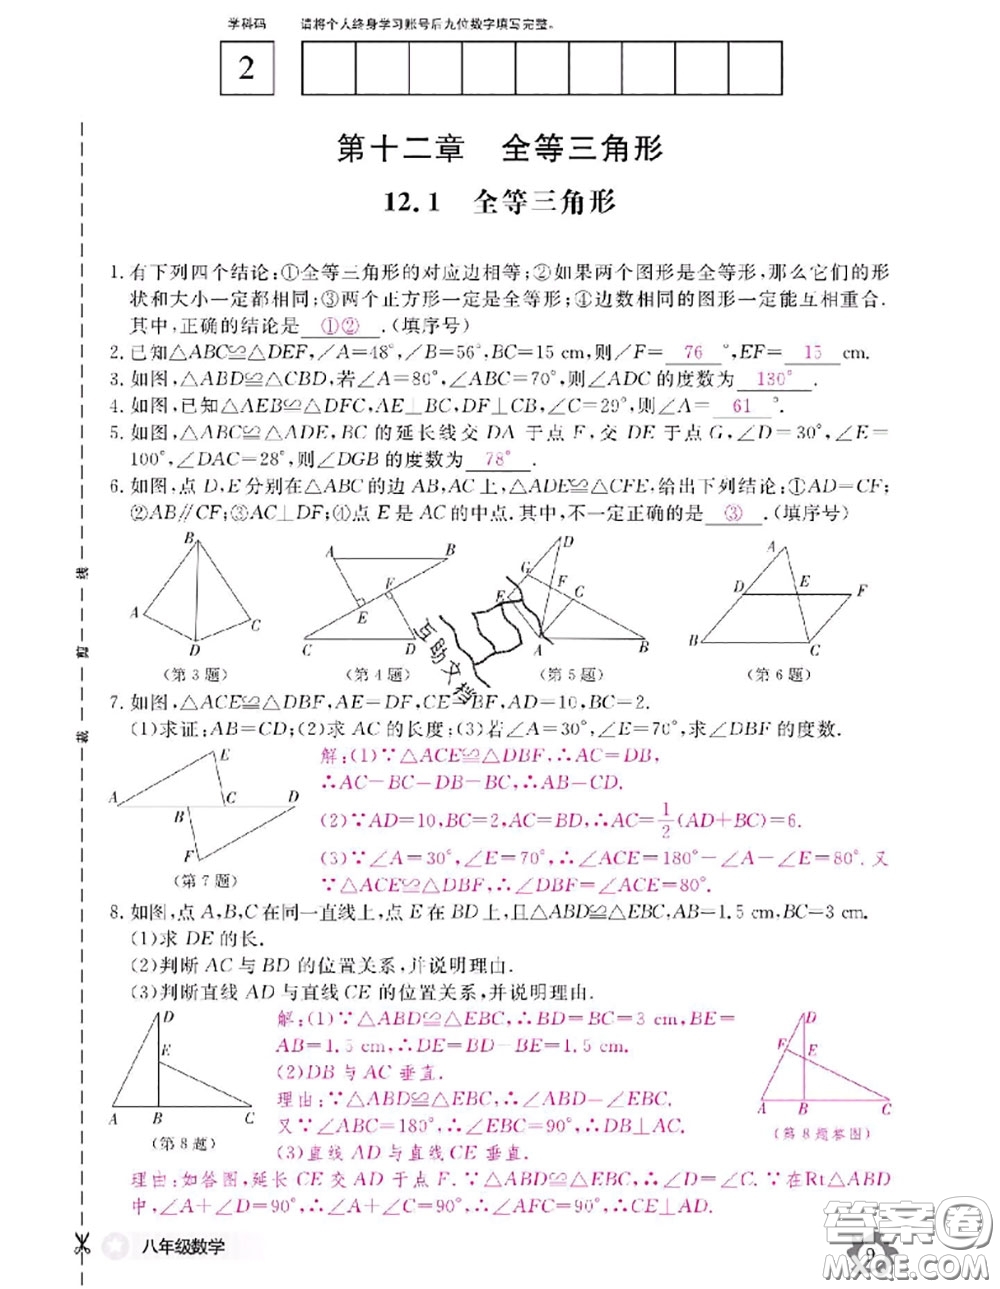 学科码 请将个人终身学习账号后九位数字填写完整。
2
第十二章 全等三角形
12.1 全等三角形
1.有下列四个结论:①全等三角形的对应边相等;②如果两个图形是全等形,那么它们的形
状和大小一定都相同;③两个正方形一定是全等形;④边数相同的图形一定能互相重合.
其中,正确的结论是 ①② .(填序号)
2.已知△ABC≌△DEF,∠A=48°,∠B=56°,BC=15 cm,则∠F= 76 °,EF= 15 cm.
3.如图,△ABD≌△CBD,若∠A=80°,∠ABC=70°,则∠ADC的度数为 130° .
4.如图,已知△AEB≌△DFC,AE⊥BC,DF⊥CB,∠C=29°,则∠A= 61 °.
5.如图,△ABC≌△ADE,BC的延长线交DA于点F,交DE于点G,∠D=30°,∠E=
100°,∠DAC=28°,则∠DGB的度数为 78° .
6.如图,点D,E分别在△ABC的边AB,AC上,△ADE≌△CFE,给出下列结论:①AD=CF;
②AB∥CF;③AC⊥DF;④点E是AC的中点.其中,不一定正确的是 ③ .(填序号)
B A C D
(第3题)
A B F E C D
(第4题)
D G F E C A B
(第5题)
A D E F B C
(第6题)
互助文档
7.如图,△ACE≌△DBF,AE=DF,CE=BF,AD=10,BC=2.
(1)求证:AB=CD;(2)求AC的长度;(3)若∠A=30°,∠E=70°,求∠DBF的度数.
E A C D B F
(第7题)
解:(1)∵△ACE≌△DBF,∴AC=DB,
∴AC-BC=DB-BC,∴AB=CD.
(2)∵AD=10,BC=2,AC=BD,∴AC=1/2(AD+BC)=6.
(3)∵∠A=30°,∠E=70°,∴∠ACE=180°-∠A-∠E=80°.又
∵△ACE≌△DBF,∴∠DBF=∠ACE=80°.
8.如图,点A,B,C在同一直线上,点E在BD上,且△ABD≌△EBC,AB=1.5 cm,BC=3 cm.
(1)求DE的长.
(2)判断AC与BD的位置关系,并说明理由.
(3)判断直线AD与直线CE的位置关系,并说明理由.
D E A B C
(第8题)
解:(1)∵△ABD≌△EBC,∴BD=BC=3 cm,BE=
AB=1.5 cm,∴DE=BD-BE=1.5 cm.
(2)DB与AC垂直.
理由:∵△ABD≌△EBC,∴∠ABD=∠EBC.
又∵∠ABC=180°,∴∠EBC=90°,∴DB⊥AC.
(3)直线AD与直线CE垂直.
D F E A B C
(第8题答图)
理由:如答图,延长CE交AD于点F.∵△ABD≌△EBC,∴∠D=∠C.∵在Rt△ABD
中,∠A+∠D=90°,∴∠A+∠C=90°,∴∠AFC=90°,∴CE⊥AD.
线 剪 裁
八年级数学
9
答案圈
MXQE.COM